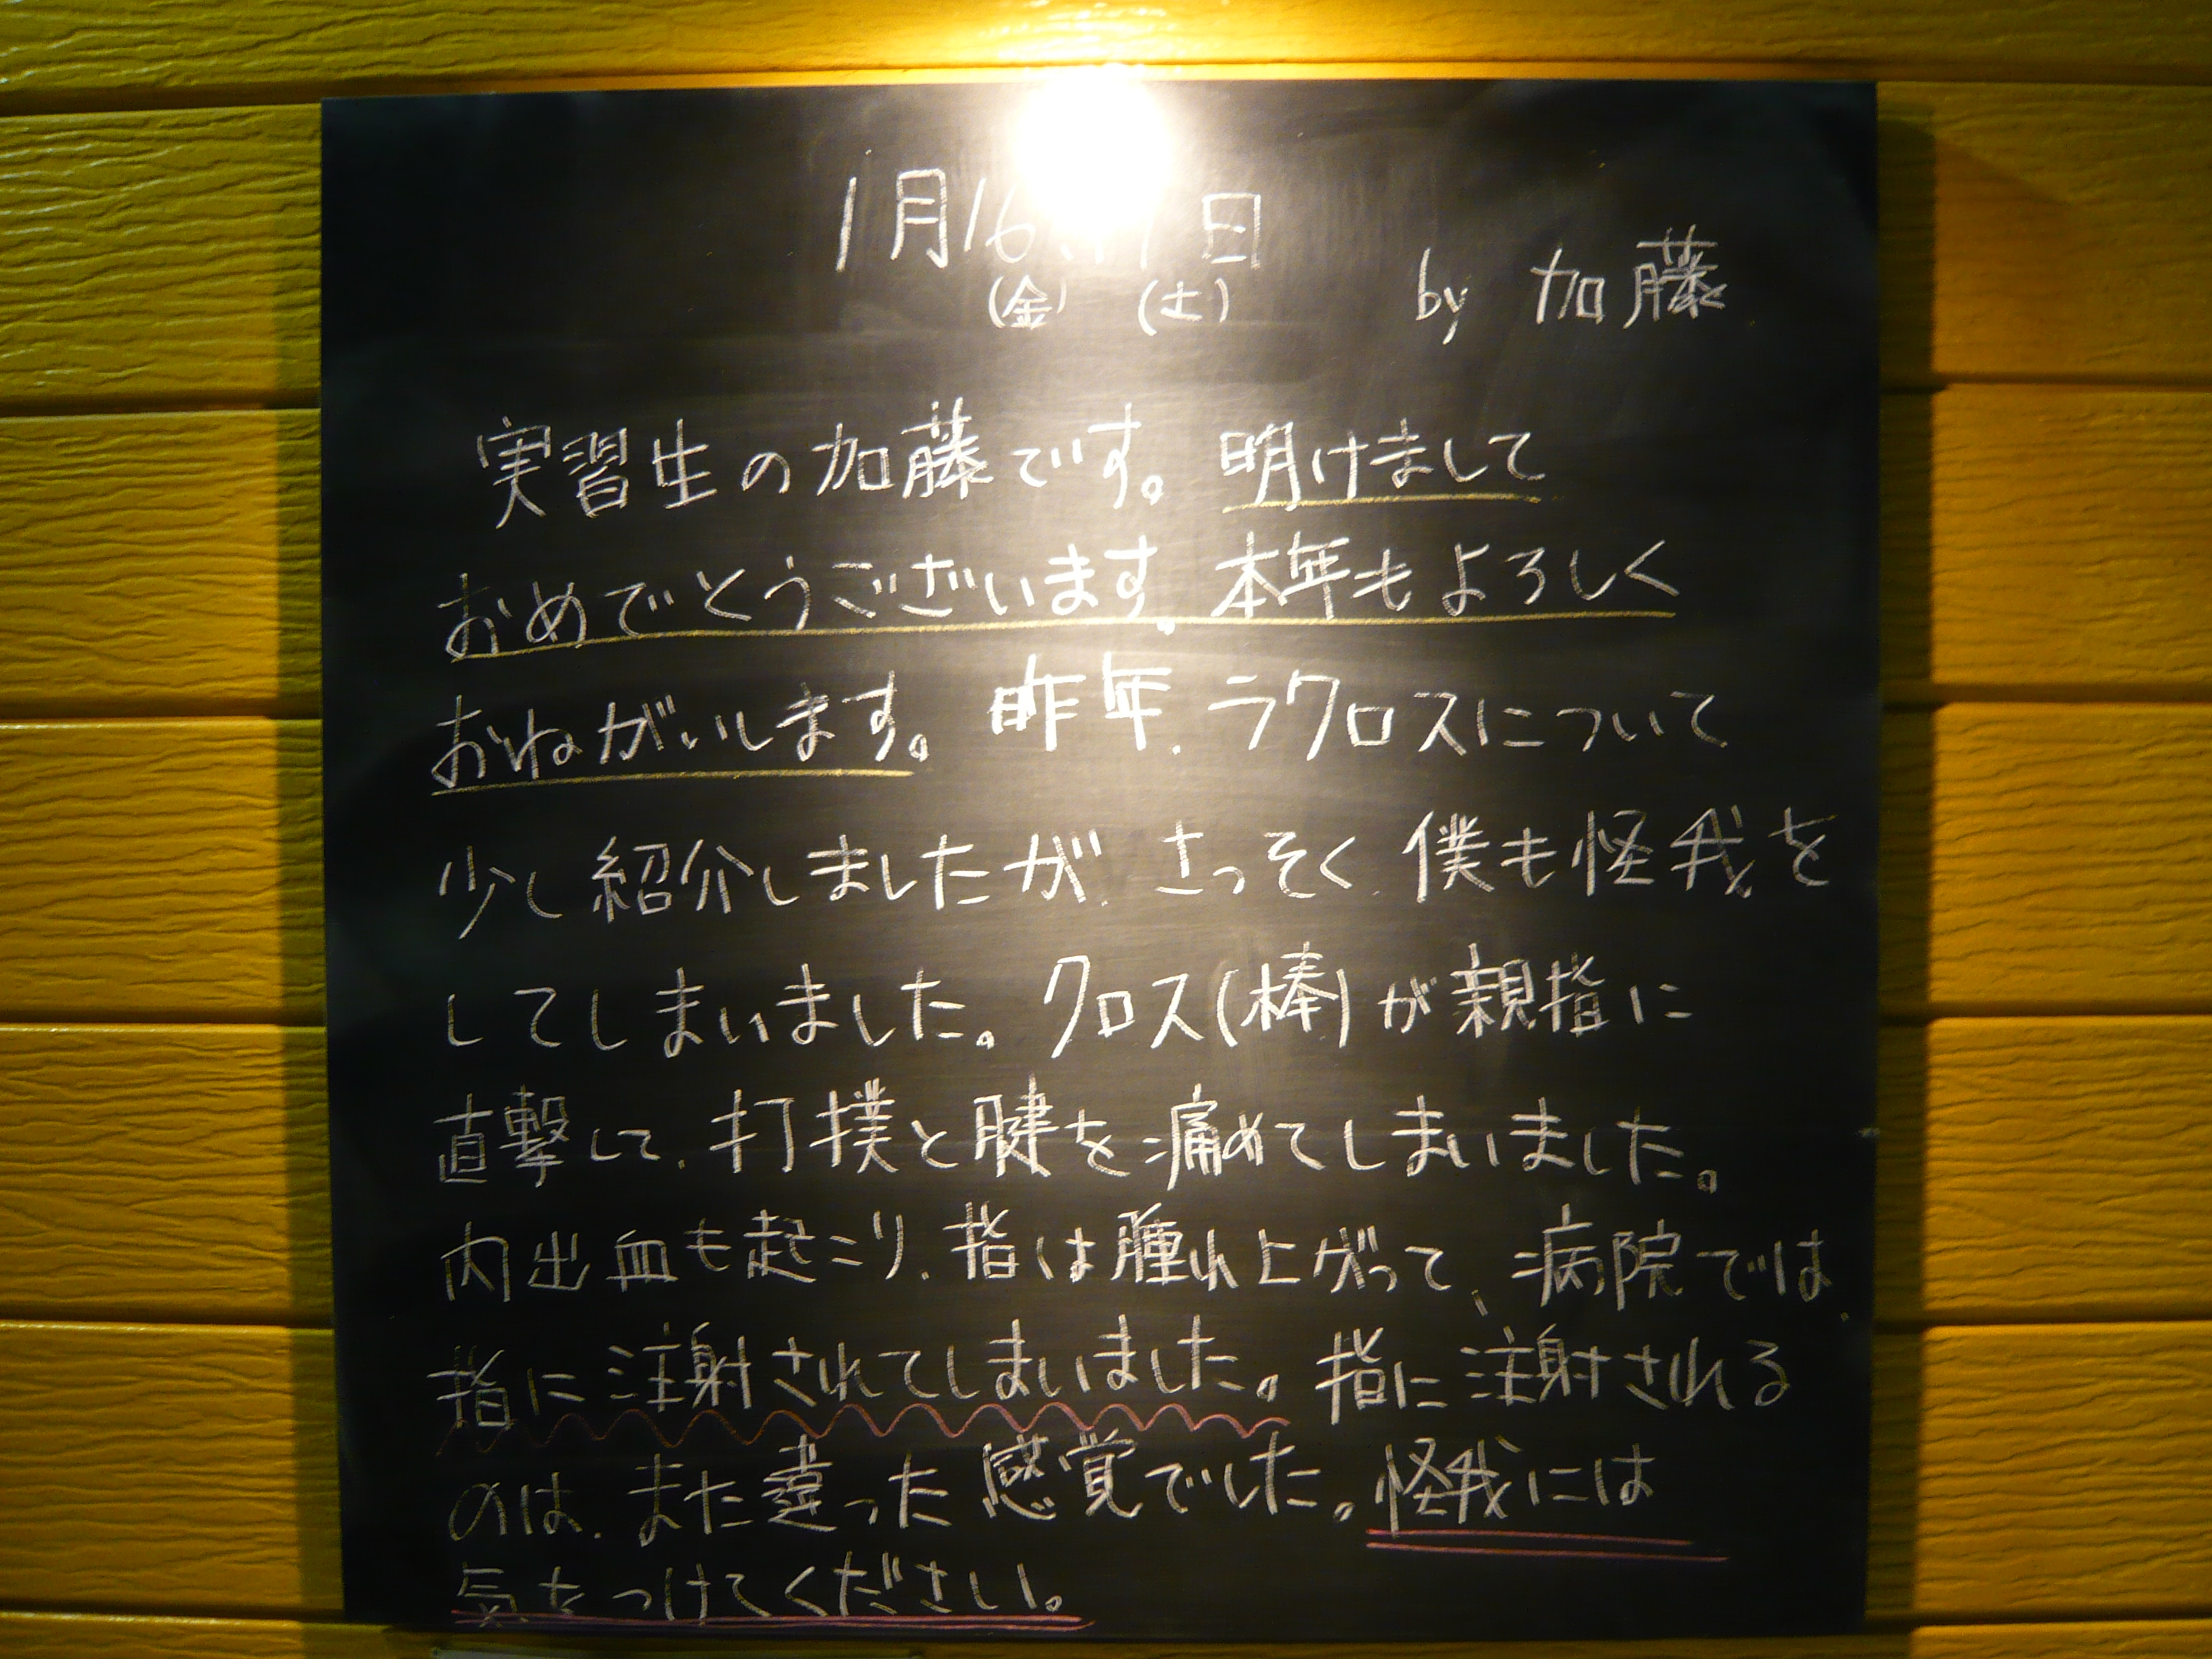 1月16.17日
(金) (土)
by 加藤
実習生の加藤です。明けまして
おめでとうございます。本年もよろしく
おねがいします。昨年、ラクロスについて
少し紹介しましたが、さっそく、僕も怪我を
してしまいました。クロス(棒)が親指に
直撃して、打撲と腱を痛めてしまいました。
内出血も起こり、指は腫れ上がって、病院では、
指に注射されてしまいました。指に注射される
のは、また違った感覚でした。怪我には
気をつけてください。